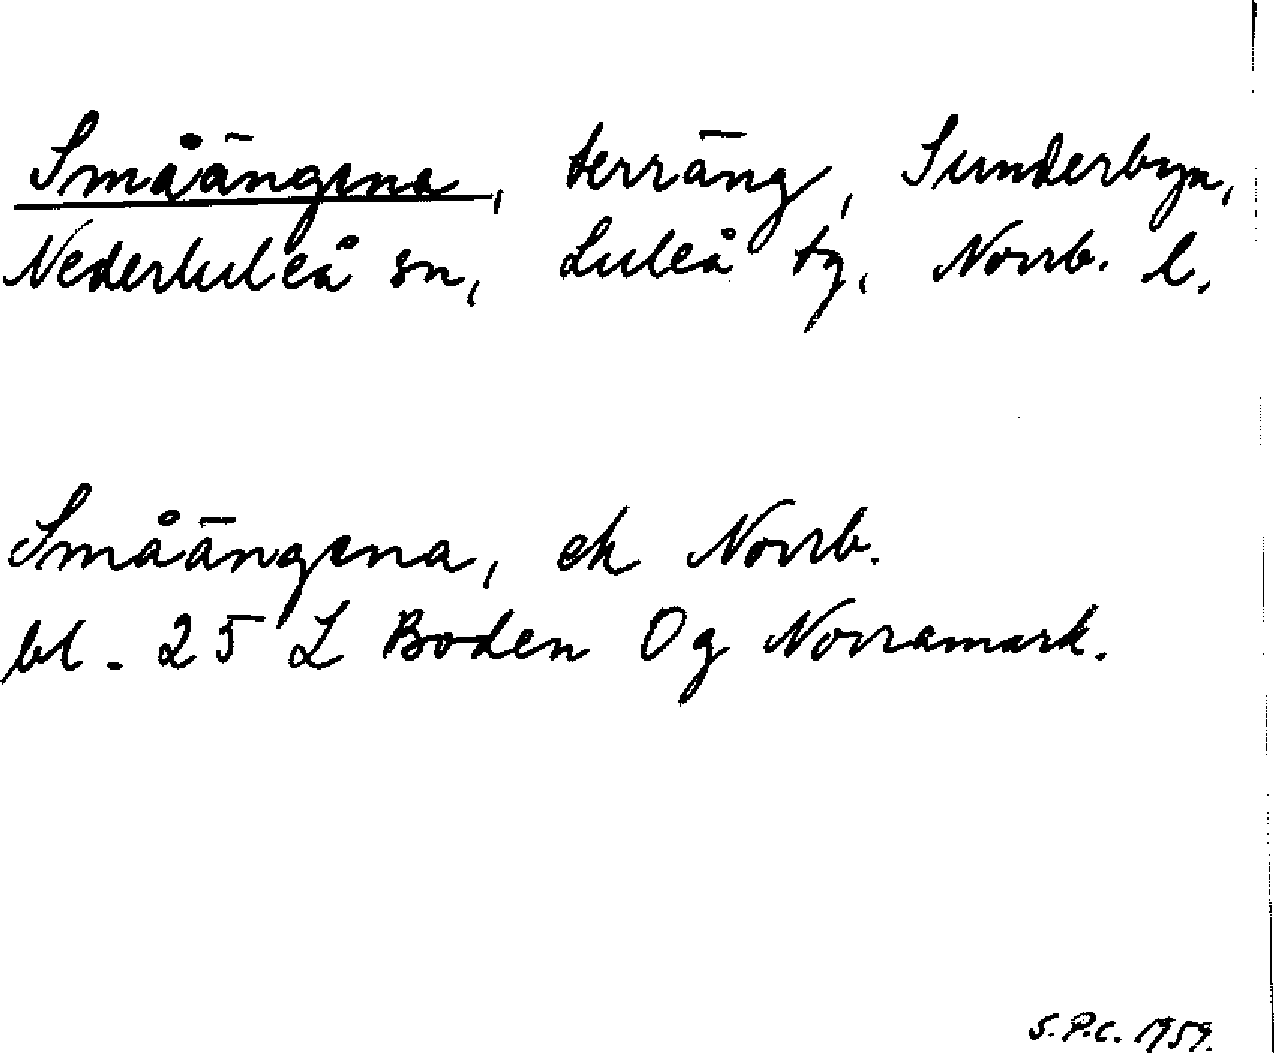 Småängena, terräng, Sunderbyn,
Nederluleå sn, Luleå tg, Norrb. l.
Småängena, ek Norrb.
bl. 25 L Boden Og Norramark.
S.P.C. 1959.